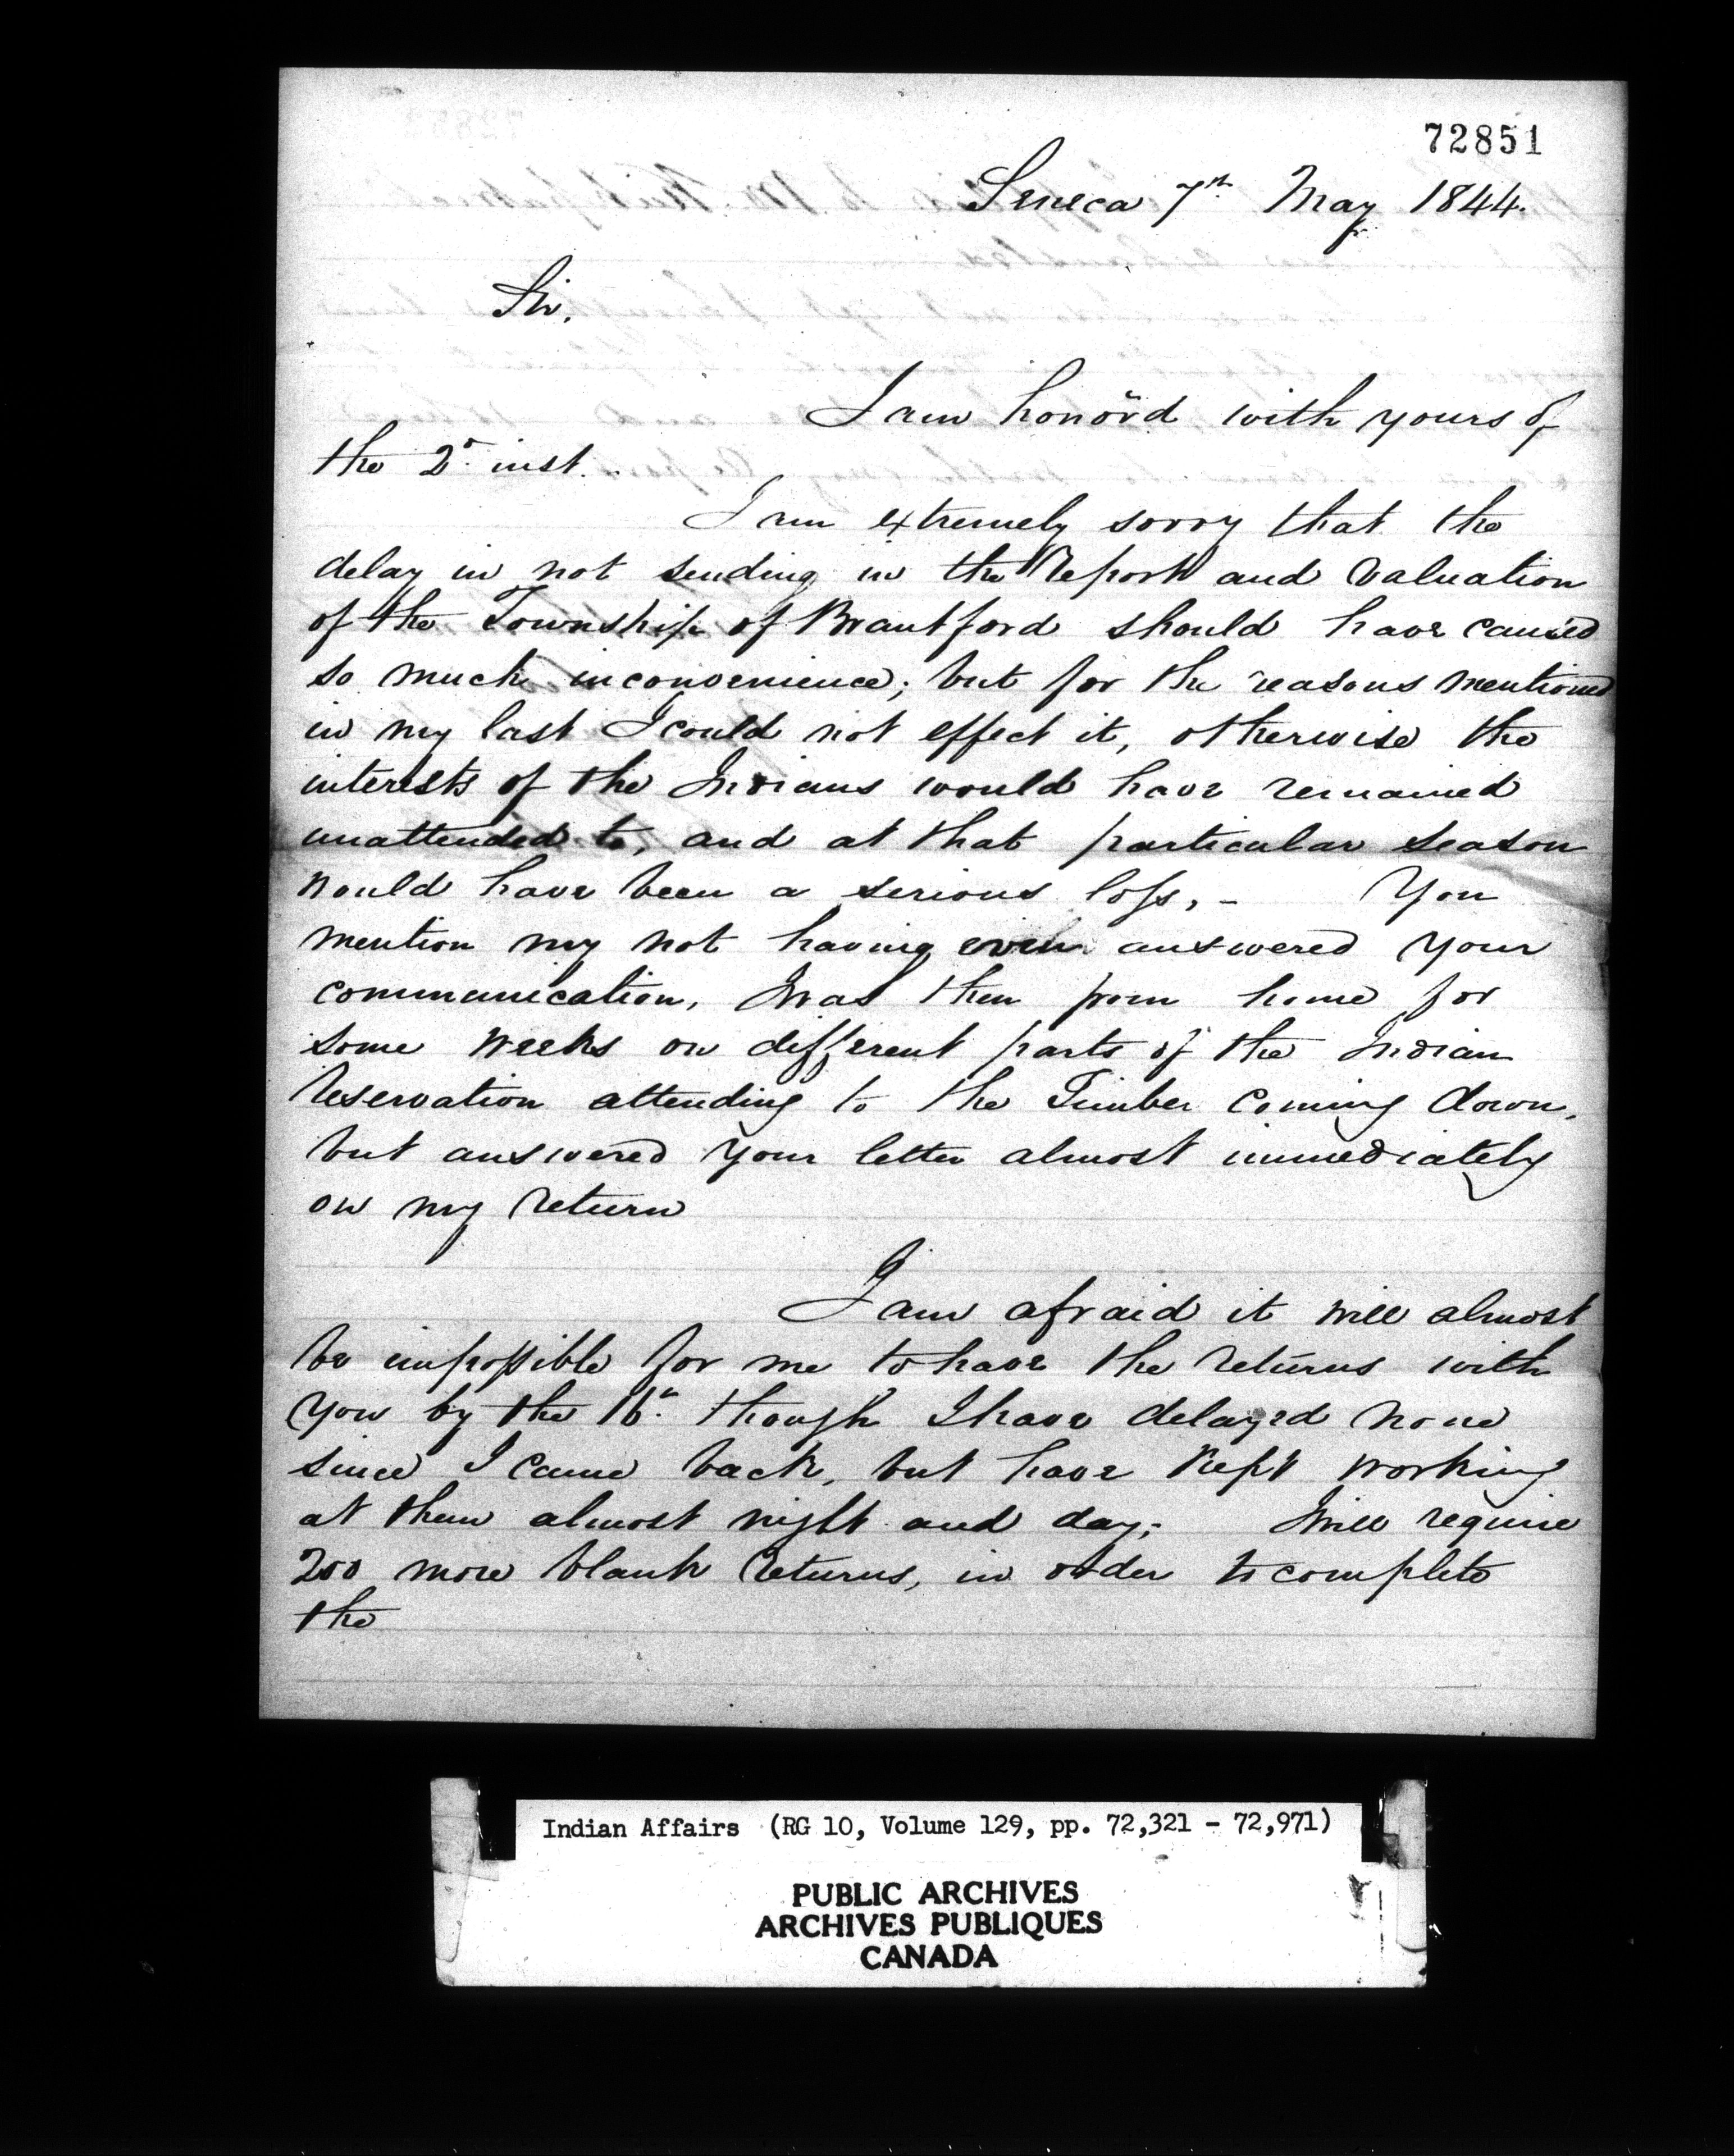 72851
Seneca 7th May 1844.
Sir,
I am honord with yours of
the 2d inst.
I am extremely sorry that the
delay in not sending in the Report and Valuation
of the Township of Brantford should have caused
so much inconvenience; but for the reasons mentioned
in my last I could not effect it, otherwise the
interests of the Indians would have remained
unattended to, and at that particular season
would have been a serious loss, - You
mention my not having even answered your
communication, I was then from home for
some weeks on different parts of the Indian
Reservation attending to the Timber coming down,
but answered your letter almost immediately
on my return
I am afraid it will almost
be impossible for me to have the returns with
you by the 16th though I have delayed none
since I came back, but have kept working
at them almost night and day; I will require
200 more blank Returns, in order to complete
the
Indian Affairs (RG 10, Volume 129, pp. 72,321 - 72,971)
PUBLIC ARCHIVES
ARCHIVES PUBLIQUES
CANADA